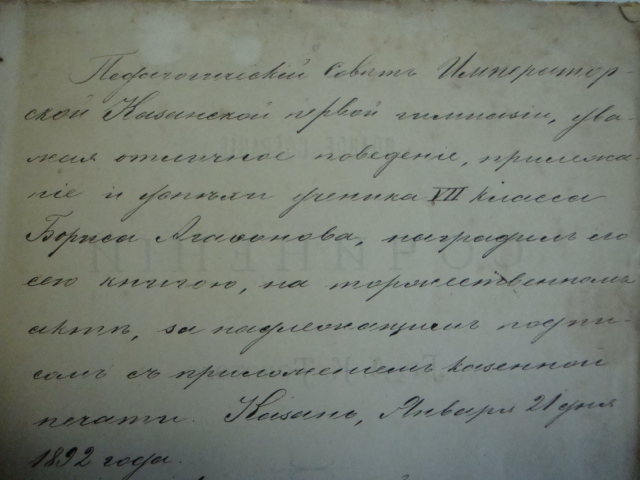 Педагогическій Совѣтъ Император-
ской Казанской первой гимназіи, ува-
жая отличное поведеніе, прилежа-
ніе и успѣхи ученика VII класса
Бориса Агафонова, наградилъ его
сею книгою, на торжественномъ
актѣ, за надлежащимъ подпи-
сомъ съ приложеніемъ казенной
печати. Казань, Января 21 дня
1892 года.